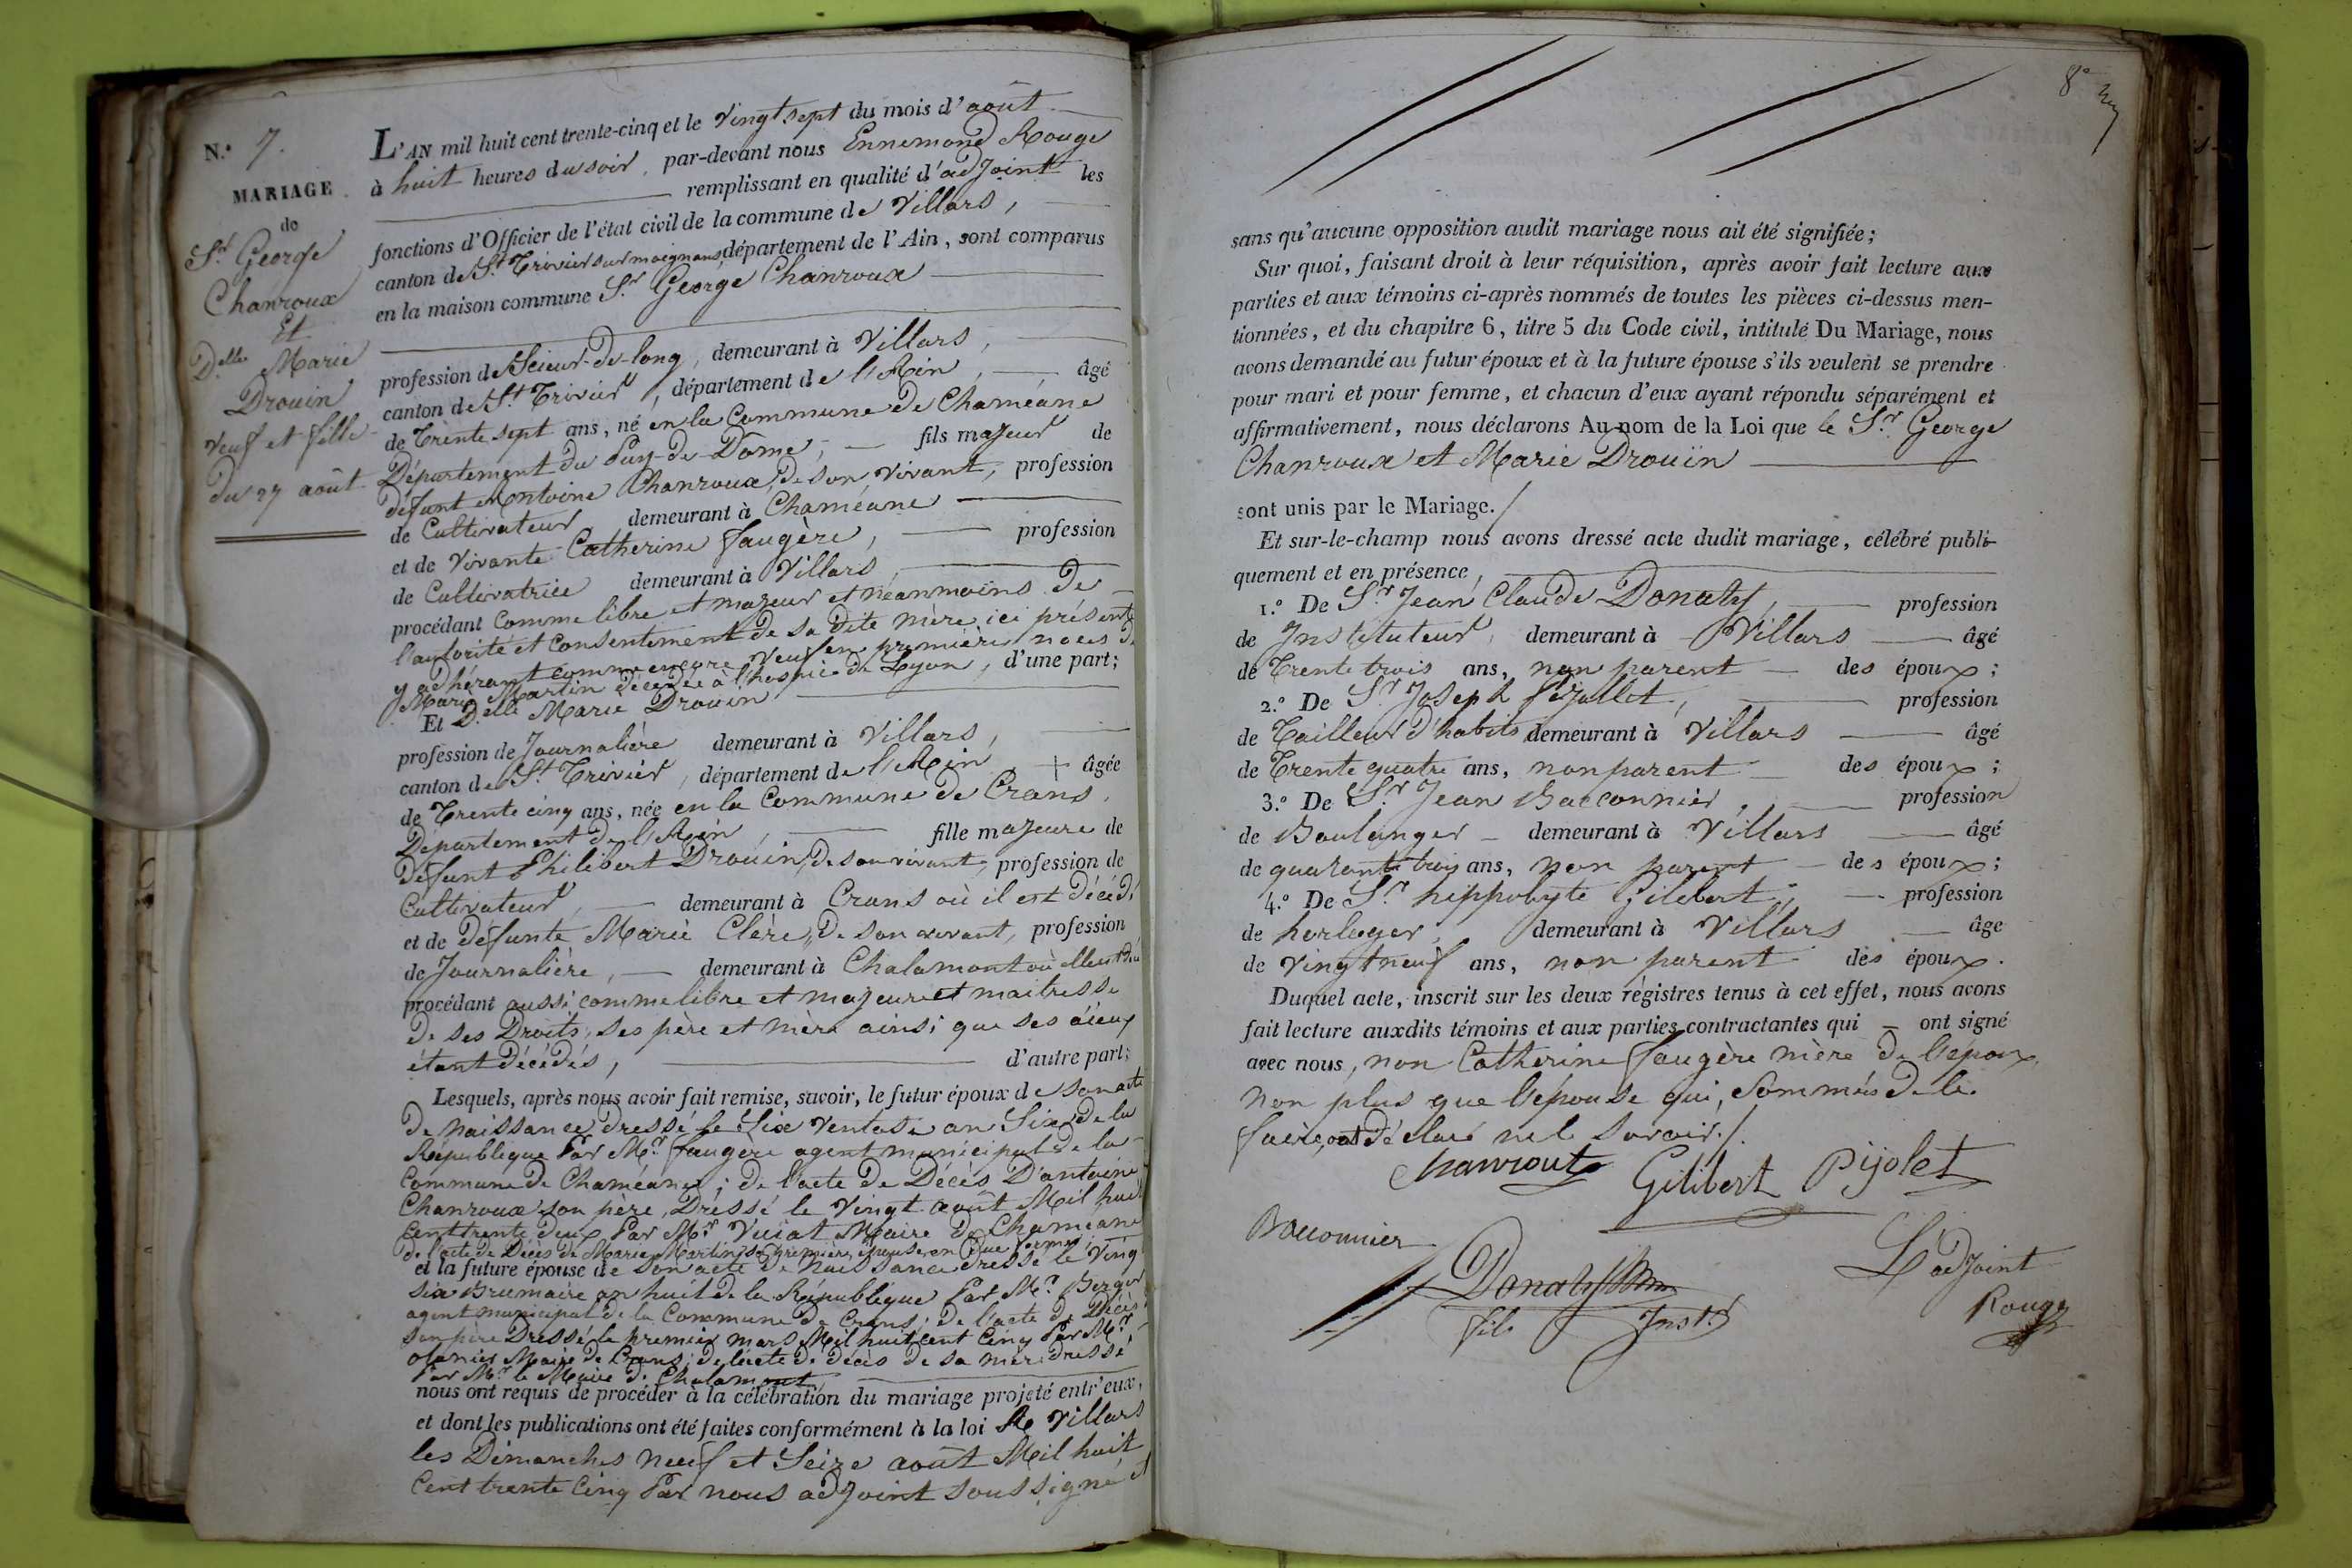 N.º 7.
MARIAGE
de
S.r George
Chanroux
Et
D.elle Marie
Drouin
veuf et fille
du 27 août
L'AN mil huit cent trente-cinq et le vingt sept du mois d'août
à huit heures du soir, par-devant nous Ennemond Rouge
remplissant en qualité d'adjoint les
fonctions d'Officier de l'état civil de la commune de Villars,
canton de St Trivier sur moignans, département de l'Ain, sont comparus
en la maison commune S.r George Chanroux
profession de Scieur-de-long, demeurant à Villars,
canton de St Trivier, département de l'Ain, âgé
de Trente sept ans, né en la Commune de Chaméane
Département du Puy-de-Dôme, fils majeur de
défunt Antoine Chanroux, de son vivant, profession
de Cultivateur demeurant à Chaméane
et de vivante Catherine faugère, profession
de Cultivatrice demeurant à Villars
procédant Comme libre et majeur et néanmoins de
l'autorité et consentement de sa dite mère ici présente
y adhérant comme encore veuf en première noces de
Marie Martin décédée à l'hospice de Lyon, d'une part;
Et D.elle Marie Drouin
profession de Journalière demeurant à Villars,
canton de St Trivier, département de l'Ain, âgée
de Trente cinq ans, née en la Commune de Crans,
Département de l'Ain, fille majeure de
défunt Philibert Drouin, de son vivant, profession de
Cultivateur, demeurant à Crans où il est décédé
et de défunte Marie Clère, de son vivant, profession
de Journalière, demeurant à Chalamont où elle est
procédant aussi comme libre et majeure et maitresse
de ses Droits, ses père et mère ainsi que ses aïeux
étant décédés, d'autre part;
Lesquels, après nous avoir fait remise, savoir, le futur époux de son acte
de naissance dressé le Six Ventose an Six de la
République Par M.r faugère agent municipal de la
Commune de Chaméane; de l'acte de Décès D'antoine
Chanroux son père, Dressé le Vingt août Mil huit
Cent trente deux Par M.r Maire de Chaméane
de l'acte de Décès de Marie Martin sa première épouse en due forme;
et la future épouse de son acte de naissance dressé le Vingt
six Brumaire an huit de la République Par M.r Berger
agent municipal de la Commune de Crans; de l'acte de Décès
son père Dressé le premier mars Mil huit cent Cinq Par M.r
Maire de Crans; de l'acte de décès de sa mère dressé
Par M.r le Maire de Chalamont,
nous ont requis de procéder à la célébration du mariage projeté entr'eux,
et dont les publications ont été faites conformément à la loi à Villars
les Dimanches neuf et Seize août Mil huit
Cent trente Cinq Par nous adjoint soussigné et
8º
sans qu'aucune opposition audit mariage nous ait été signifiée;
Sur quoi, faisant droit à leur réquisition, après avoir fait lecture aux
parties et aux témoins ci-après nommés de toutes les pièces ci-dessus men-
tionnées, et du chapitre 6, titre 5 du Code civil, intitulé Du Mariage, nous
avons demandé au futur époux et à la future épouse s'ils veulent se prendre
pour mari et pour femme, et chacun d'eux ayant répondu séparément et
affirmativement, nous déclarons Au nom de la Loi que le S.r George
Chanroux et Marie Drouin
sont unis par le Mariage./
Et sur-le-champ nous avons dressé acte dudit mariage, célébré publi-
quement et en présence,
1.º De S.r Jean Claude Donaty, profession
de Instituteur, demeurant à Villars âgé
de Trente trois ans, non parent des époux;
2.º De S.r Joseph Pijollet, profession
de Tailleur d'habits demeurant à Villars âgé
de Trente quatre ans, non parent des époux;
3.º De S.r Jean Bacconnier, profession
de Boulanger demeurant à Villars âgé
de quarante trois ans, non parent des époux;
4.º De S.r hippolyte Gilibert, profession
de horloger, demeurant à Villars âge
de vingt neuf ans, non parent des époux.
Duquel acte, inscrit sur les deux registres tenus à cet effet, nous avons
fait lecture auxdits témoins et aux parties contractantes qui ont signé
avec nous, non Catherine faugère mère de l'époux,
non plus que l'épouse qui, Sommés de le
faire, ont déclaré ne le savoir./.
Chanroux Gilibert Pijolet
Bacconnier
Donaty
fils Inst.r
L'adjoint
Rouge